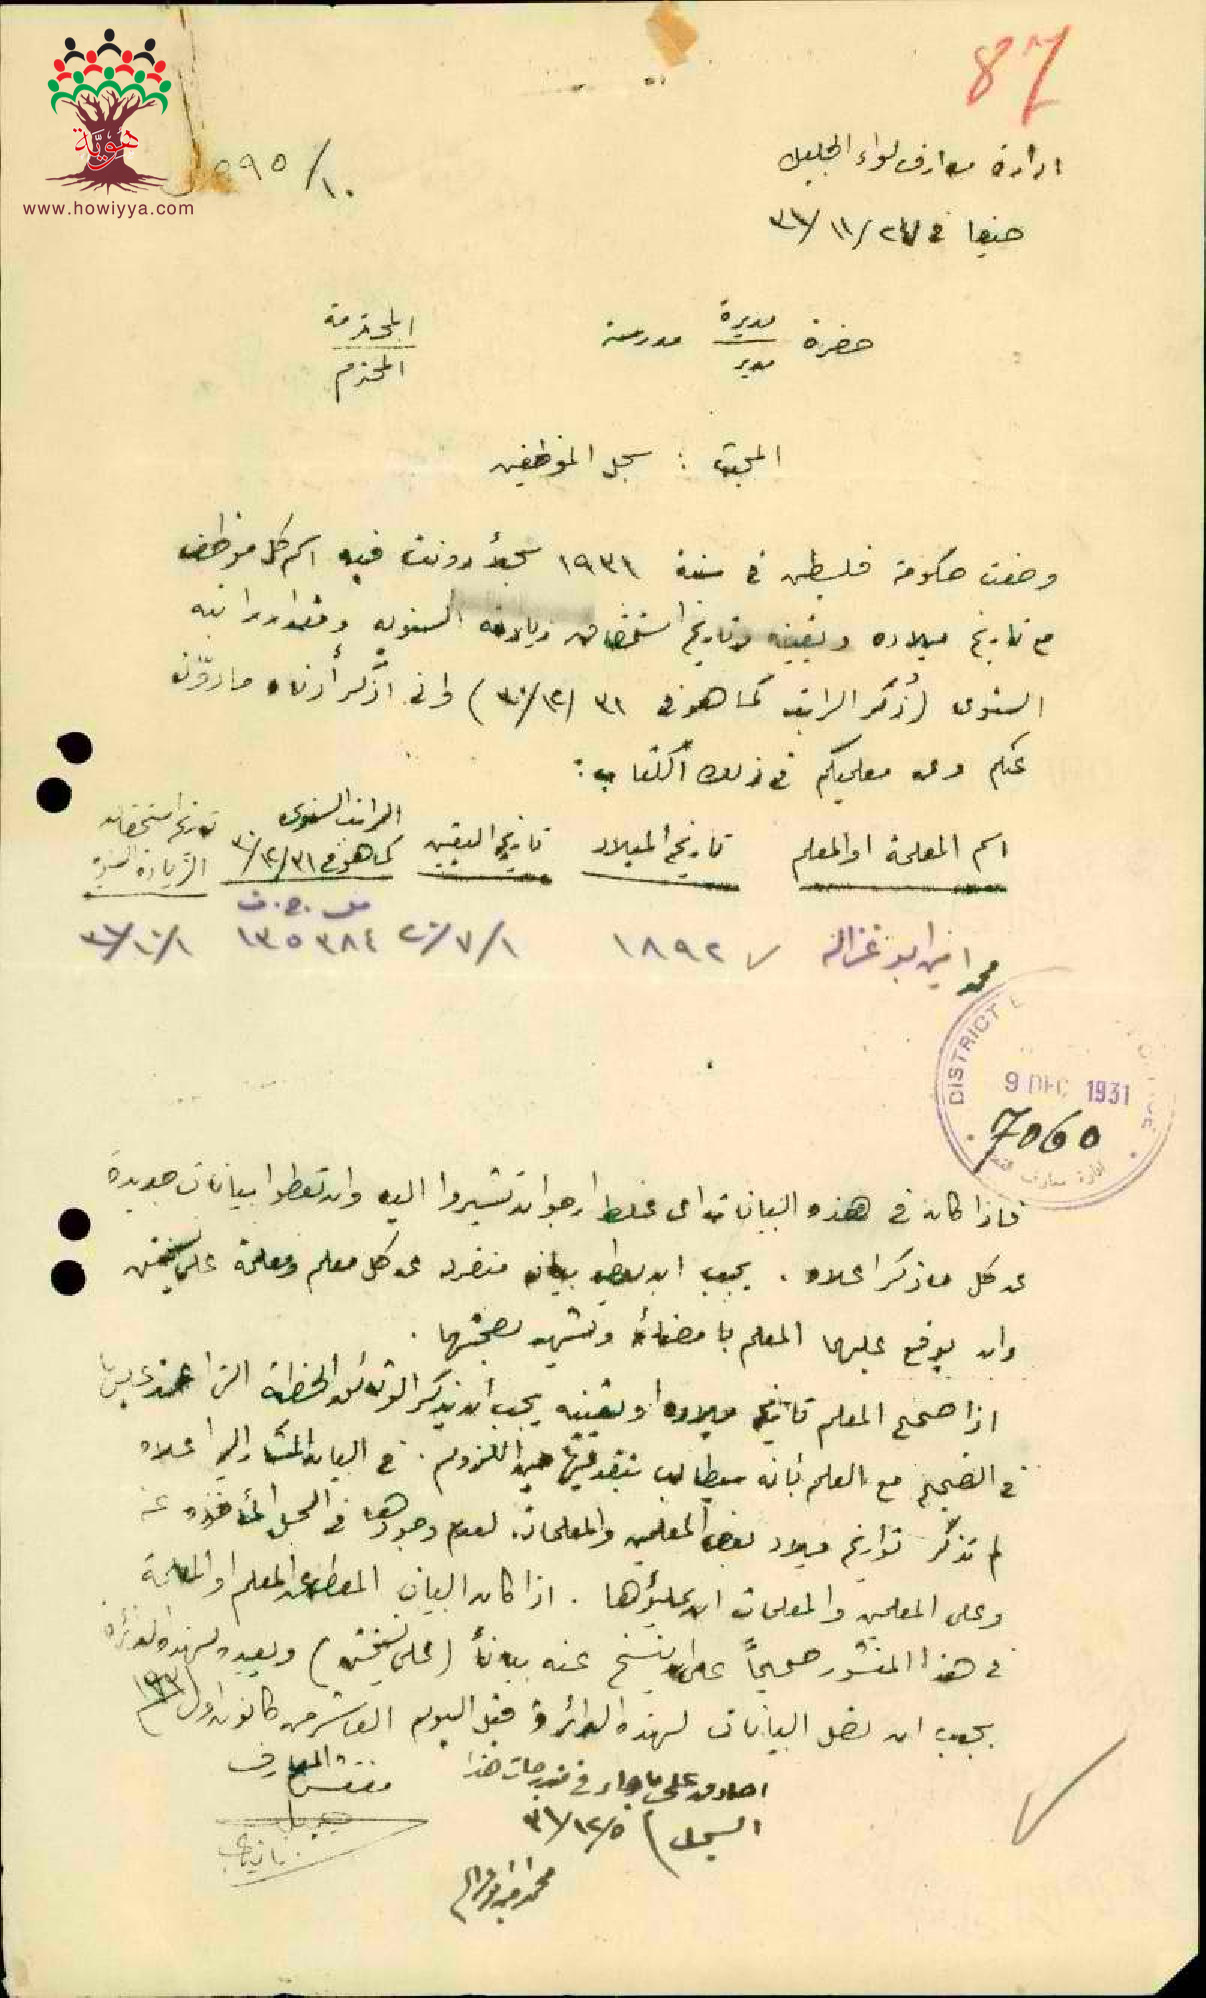 هوية
www.howiyya.com
87
ادارة معارف لواء الجليل
٥٩٥/١٠
حيفا في ٢٧/١١/٣١
حضرة مديرة مدرسة المحترمة
مدير المحترم
المبحث : سجل الموظفين
وضعت حكومة فلسطين في سنة ١٩٣١ سجلاً دونت فيه اسم كل موظف
مع تاريخ ميلاده وتعيينه وتاريخ استحقاق زيادته السنوية ومقدار راتبه
السنوي (ذُكر الراتب كما هو في ٣١/١٢/٣٠) واني اذكر أدناه ما دوّن
عنكم وعن معلميكم في ذلك الكتاب :
اسم المعلمة او المعلم تاريخ الميلاد تاريخ التعيين الراتب السنوي كما هو في ٣١/١٢/٣٠ تاريخ استحقاق الزيادة السنوية
مل ج.ف
محمد امين ابو غزاله ١٨٩٢ ١/٧/٢٠ ٣٨٤ ١٣٥ ١/١٠/٣١
DISTRICT
9 DEC 1931
7060
ادارة معارف
فاذا كان في هذه البيانات اي غلط ارجو ان تشيروا اليه وان تعطوا بيانات جديدة
عن كل ما ذكر اعلاه . يجب ان يعطى بيان منفرد عن كل معلم ومعلمة على نسختين
وان يوقع عليها المعلم بامضائه وتشهد بصحتها .
اذا صحح المعلم تاريخ ميلاده او تعيينه يجب ان يذكر الوثائق الخطية التي اعتمد عليها
في التصحيح مع العلم بأنه سيطالب بتقديمها حين اللزوم . في البيان المشار اليه اعلاه
لم تذكر تواريخ ميلاد بعض المعلمين والمعلمات لعدم وجودها في السجل المأخوذه عنه
وعلى المعلمين والمعلمات ان يملؤها . اذا كان البيان المعطى عن المعلم او المعلمة
في هذا المنشور صحيحاً عليه ان ينسخ عنه بياناً (على نسختين) ويعيده لهذه الدائرة
يجب ان تصل البيانات لهذه الدائرة قبل اليوم العاشر من كانون اول ١٩٣١
مفتش المعارف
اصادق على ما جاء في مندرجات هذا
السجل ٥/١٢/٣١
محمد امين ابو غزاله